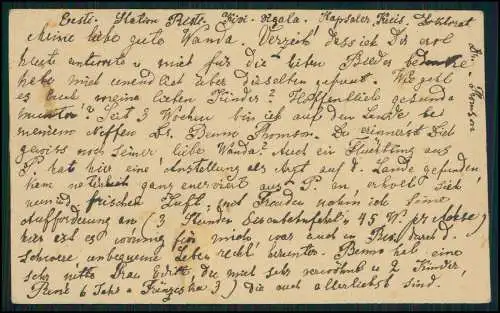 Eesti. Station Risti. Kivi-Vigala. Hapsaler Kreis. Doktorat
Dr. Thomson
Meine liebe gute Wanda. Verzeih! dass ich Dir erst
heute antworte u mich für die lieben Bilder bedanke
habe mich unendlich über dieselben gefreut. Wie geht
es Euch meine lieben Kinder? Hoffentlich gesund u
munter? Seit 3 Wochen bin ich auf dem Lande bei
meinem Neffen Dr. Benno Thomson. Du erinnerst Dich
gewiss noch seiner liebe Wanda? Auch ein Flüchtling aus
P. hat hier eine Anstellung als Arzt auf d. Lande gefunden
kam natürlich ganz enerviert aus P. an erholt sich
an frischer Luft, mit Freuden nahm ich seine
Aufforderung an (3 Stunden Eisenbahnfahrt, 45 W. per Achse)
hier ist es wonnig für mich, war auch in Reval durch d.
schwere, unbequeme Leben recht herunter. Benno hat eine
sehr nette Frau Edith die mich sehr verwöhnt u 2 Kinder
René 6 Jahr u Franziska 3) die auch allerliebst sind.